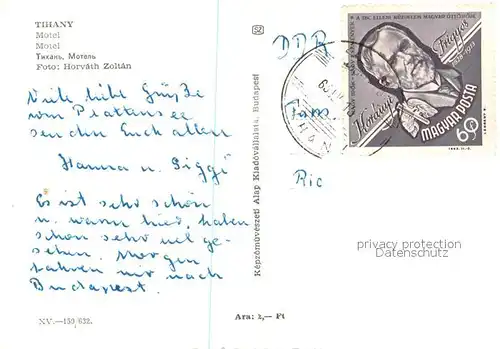 TIHANY
Motel
Motel
Тихань, Мотель
Foto: Horváth Zoltán
Viele liebe Grüße
vom Plattensee
senden Euch allen
Hanna u. Siggi
Es ist sehr schön
u. warm hier, haben
schon sehr viel ge-
sehen. Morgen
fahren wir nach
Budapest.
XV.—150/632.
Ara: 2,— Ft
Képzőművészeti Alap Kiadóvállalata, Budapest
DDR
Fam
Ric
Korányi Frigyes
1828-1913
MAGYAR POSTA
60
privacy protection
Datenschutz